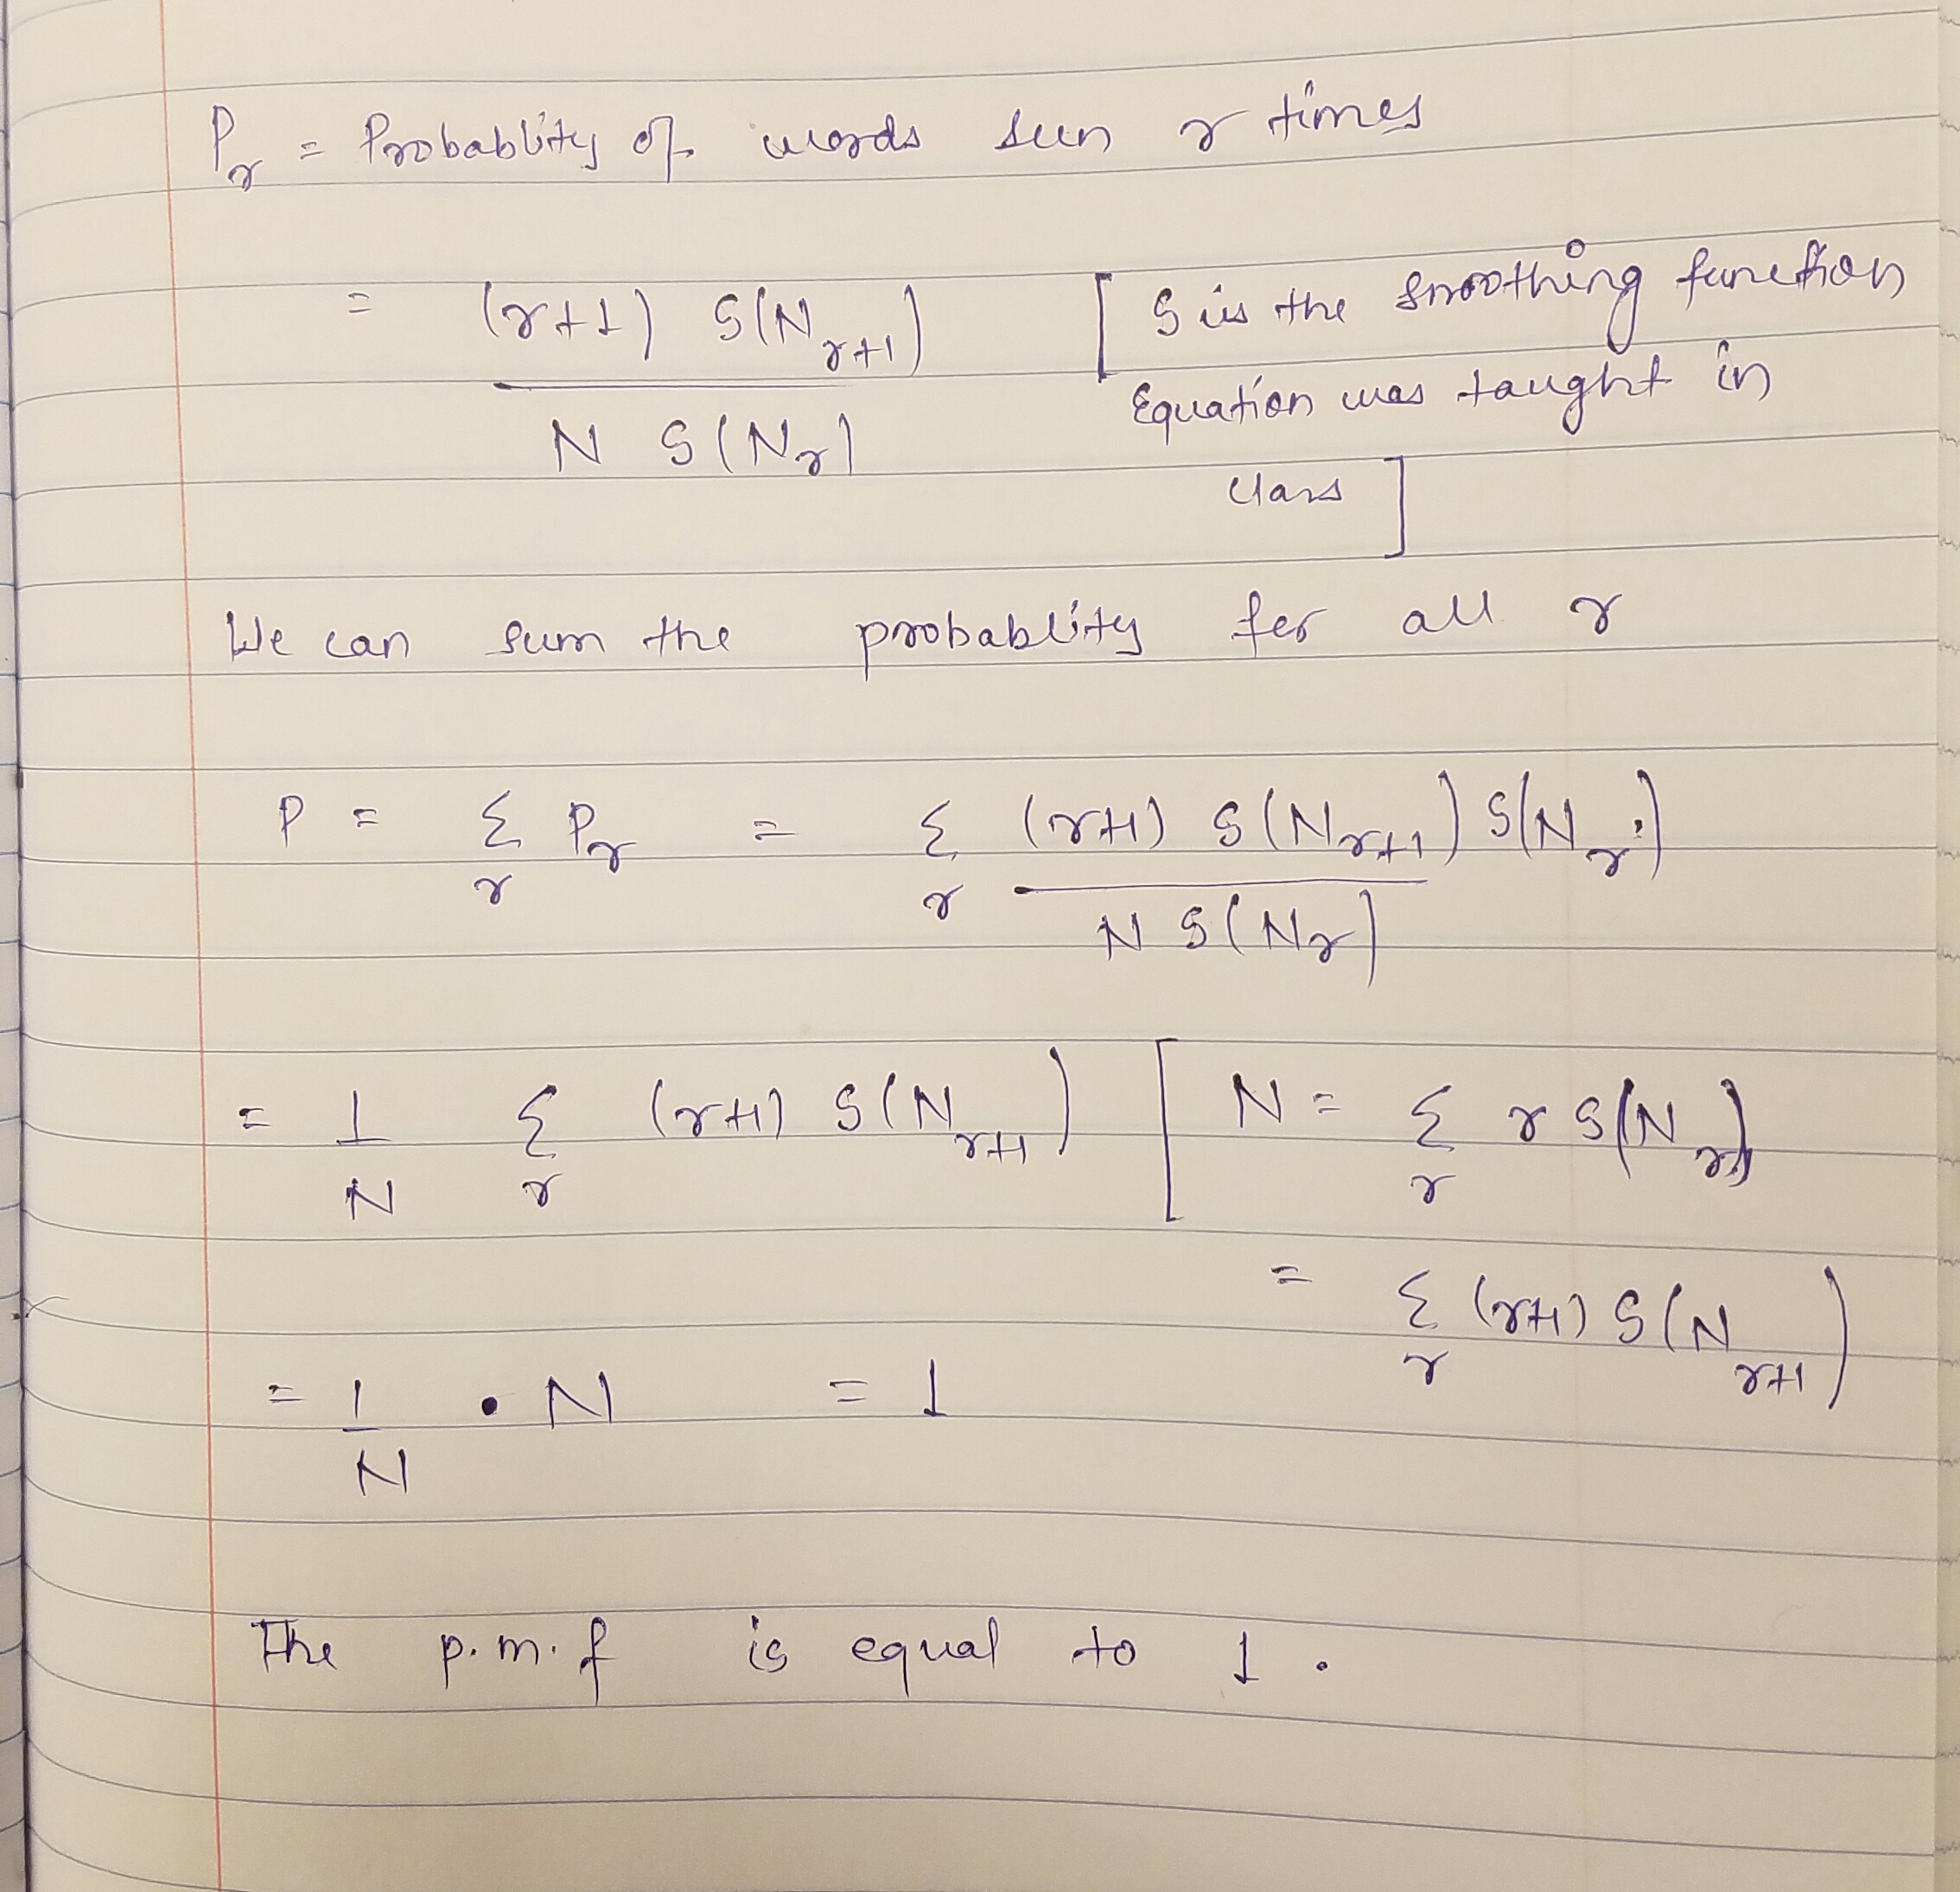 P_r = Probablity of words seen r times
= (r+1) S(N_{r+1}) / N S(N_r) [ S is the smoothing function
Equation was taught in
class ]
We can sum the probablity for all r
P = Σ_r P_r = Σ_r (r+1) S(N_{r+1}) S(N_r) / N S(N_r)
= 1/N Σ_r (r+1) S(N_{r+1}) [ N = Σ_r r S(N_r)
= Σ_r (r+1) S(N_{r+1})
= 1/N • N = 1
The p.m.f is equal to 1.